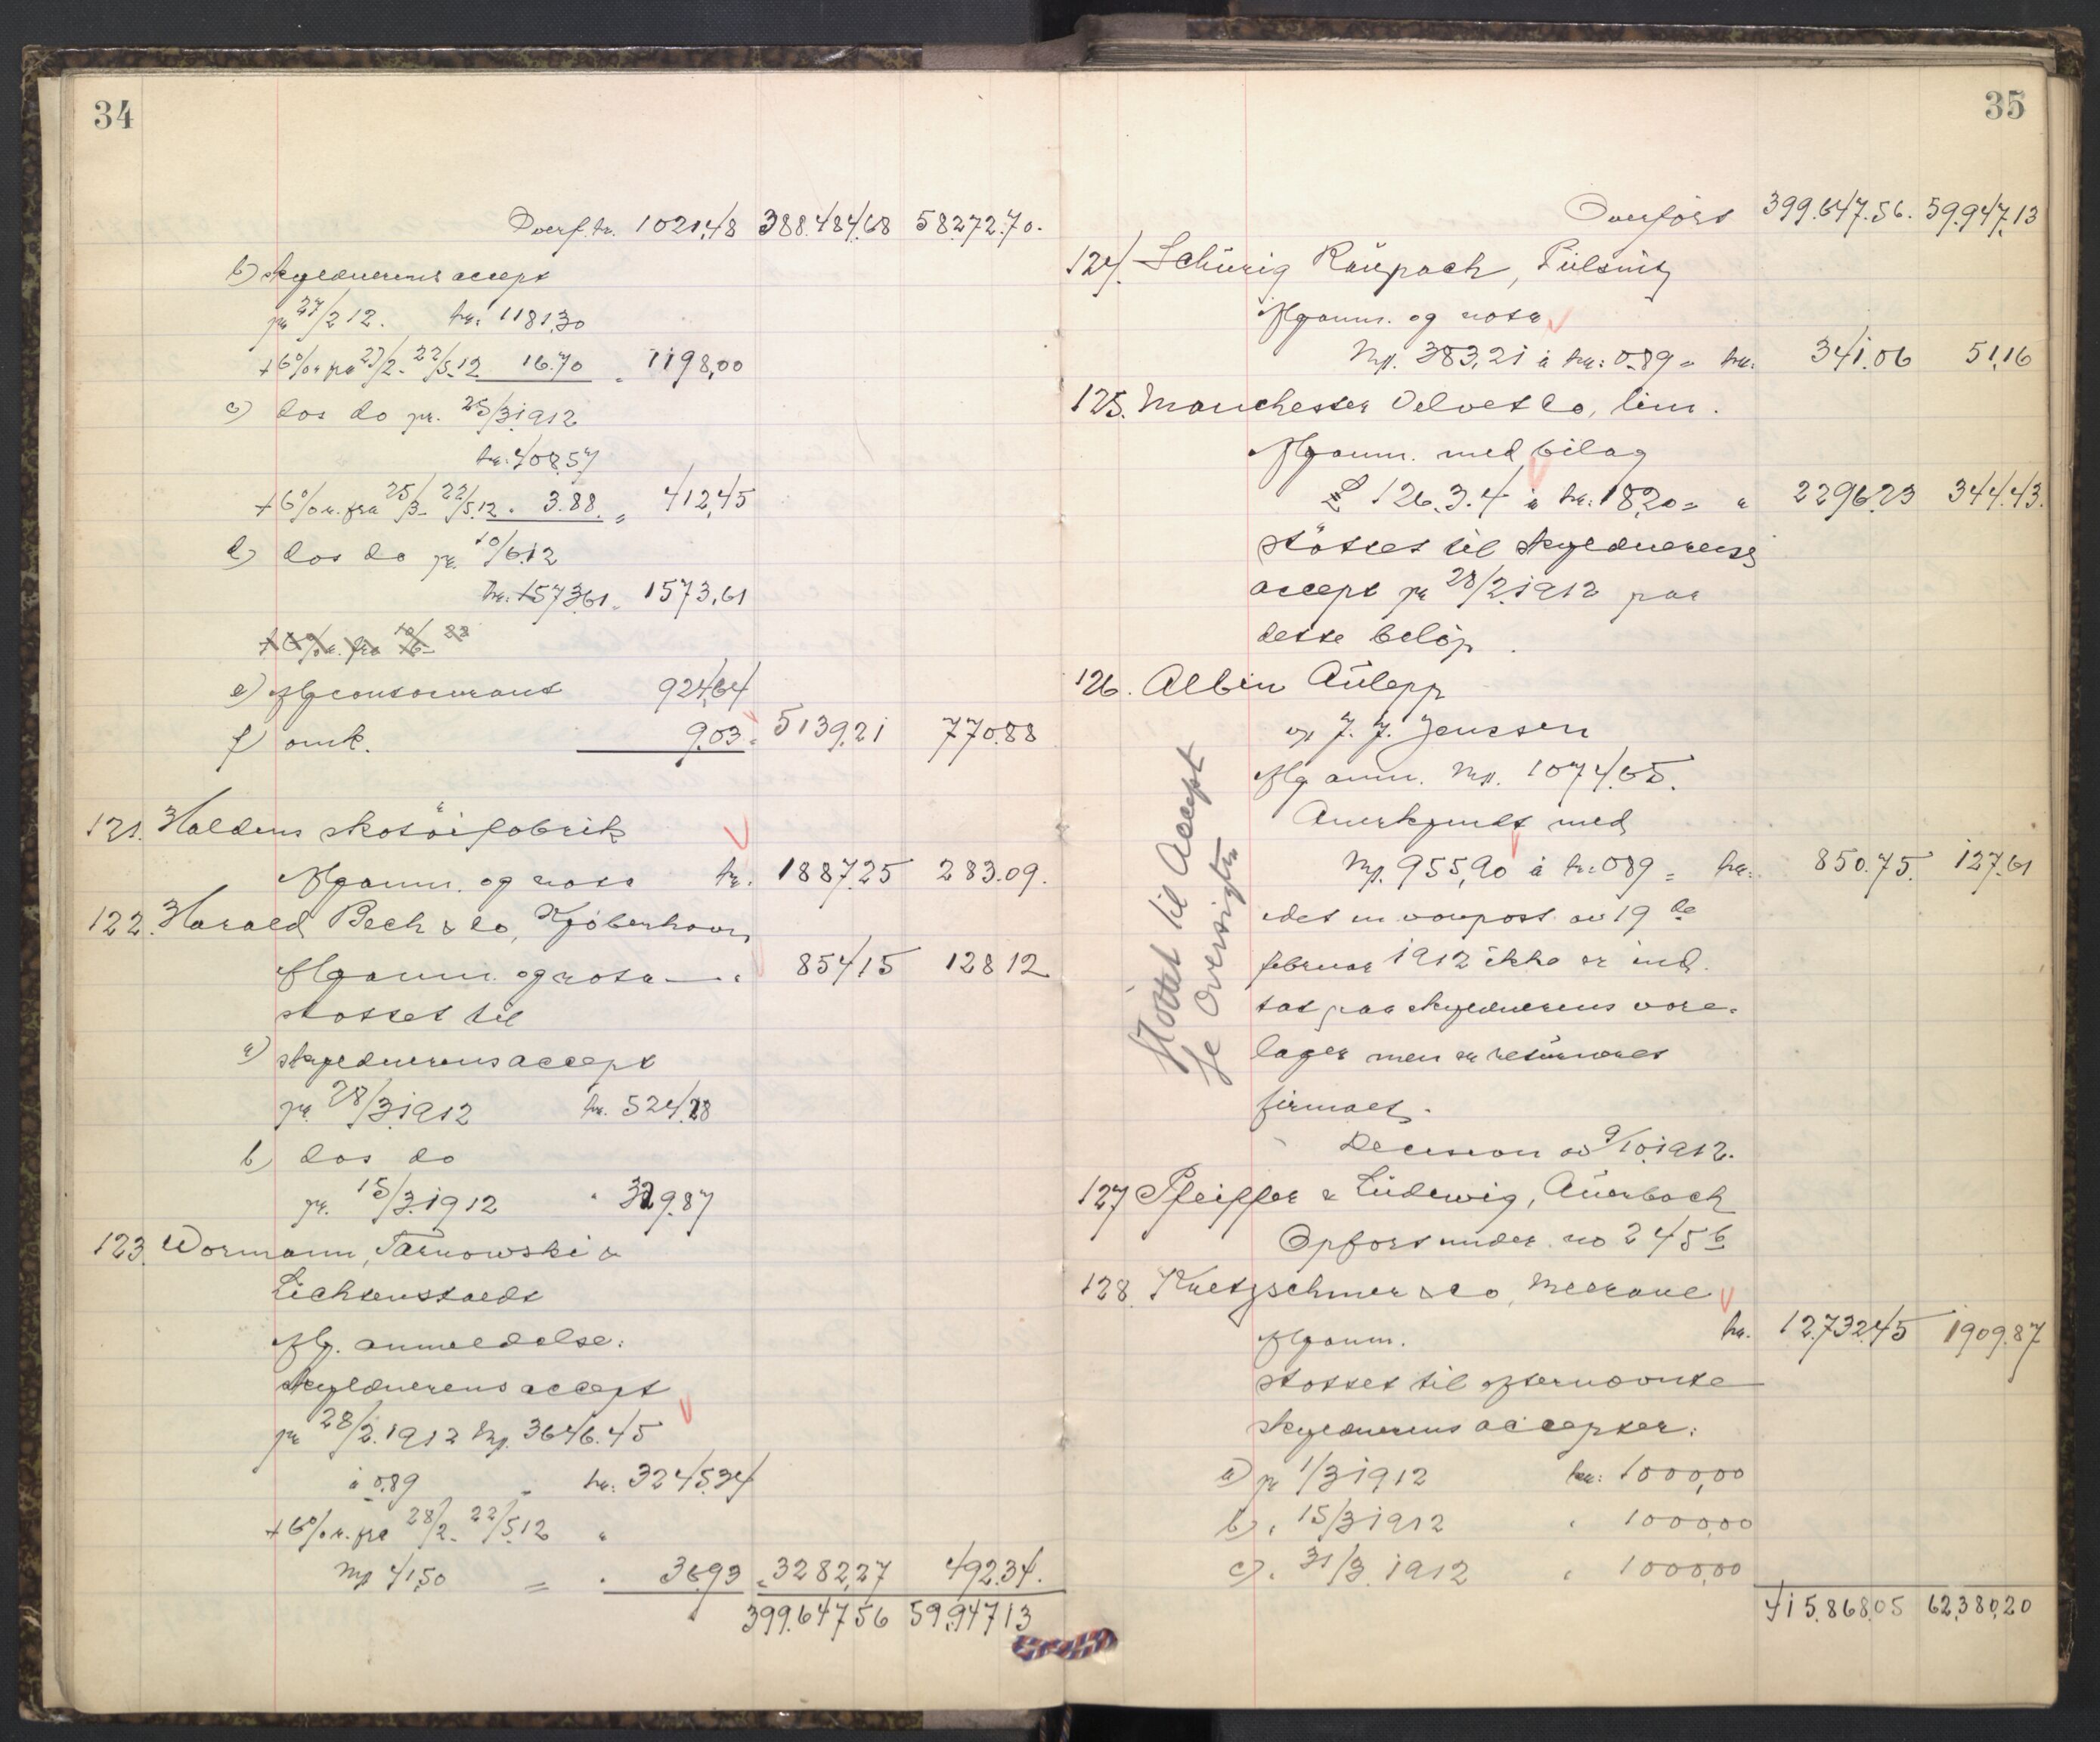 34
Overf. kr. 1021,48 388.484,68 58272.70.
b) skyldnerens accept
pr 27/2 12. kr. 1181,30
+ 6% r. fra 27/2 - 22/5.12 16.70 = 1198,00
c) dos do pr. 25/3.1912
kr. 408,57
+ 6% r. fra 25/3 - 22/5.12 " 3.88. = 412,45
d) dos do pr. 10/6.12
kr. 1573,61 = 1573,61
+ 6% r. fra 10/6 - 22
e) Ifg contocurant 924,64
f) omk. 9,03 = 5139,21 770.88
121. Haldens skotöifabrik
Ifg anm. og nota kr. 1887.25 283.09.
122. Harald Bech & Co, Kjöbenhavn
Ifg anm. og nota — " 854,15 128 12
støttet til
a) skyldnerens accept
pr. 28/3.1912 kr. 524,28
b) dos do
pr. 15/3.1912 " 329.87
123. Wormann, Tarnowski &
Lichtenstaedt
Ifg. anmeldelse:
skyldnerens accept
pr 28/2.1912 Mk. 3646.45
à 0.89 = kr. 3245.34
+ 6% r. fra 28/2 - 22/5.12 "
Mk 41,50 = " 36,93 = 3282,27 492.34.
399.647 56 59.947 13
35
Overført 399.647.56. 59.947,13
124. Schürig Raüpach, Pülsnitz
Ifg anm. og nota
Mk. 383,21 à kr: 0.89 = kr. 341.06 51,16
125. Manchester Velvet Co, lim.
Ifg anm. med bilag
£ 126.3.4 à kr. 18,20 = " 2296.23 344.43.
støttet til skyldnerens
accept pr 28/2.1912 paa
dette beløp.
126. Albin Aülepp
v/ J. J. Janssen
Ifg anm. Mk. 1074.65.
Anerkjendt med
Mk. 955,90 à kr. 0.89 = kr. 850.75. 127.61
idet en varepost av 19 de
februar 1912 ikke er ind-
tat paa skyldnerens vare-
lager men er returneret
firmaet.
Decision av 9/10.1912.
Støttet til Accept
Se Oversigten
127 Pfeiffer & Lüdewig, Aüerbach
Opført under no 245 b
128. Kretzschmer & Co, Meerane
Ifg anm. kr. 12.732.45 1909.87
støttet til efternævnte
skyldnerens accepter:
a) pr 1/3 1912 kr: 1000,00
b) " 15/3 1912 " 1000,00
c) " 31/3. 1912 " 1000,00
415.868.05 62.380,20